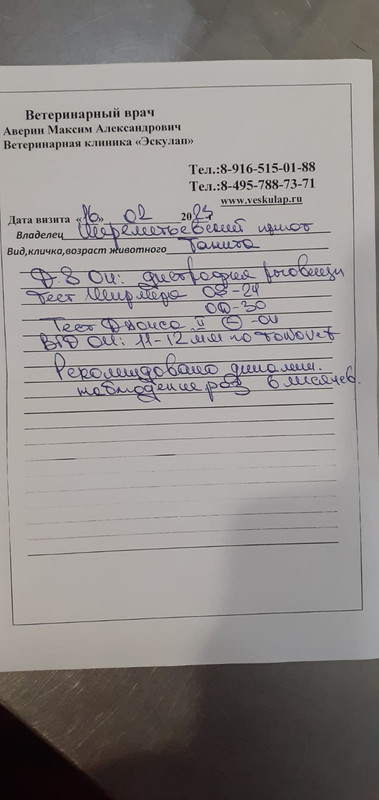 Ветеринарный врач
Аверин Максим Александрович
Ветеринарная клиника «Эскулап»
Тел.:8-916-515-01-88
Тел.:8-495-788-73-71
www.veskulap.ru
Дата визита «16» 02 20 г
Владелец Шереметьевский приют
Вид,кличка,возраст животного Танита
Д-S OU: дистрофия роговицы
Тест Ширмера OS-24
OD-30
Тест Джонса II ⊖ -OU
ВГД OU: 11-12 мм по TONOVET
Рекомендовано динамич.
наблюдение раз 6 месяцев.